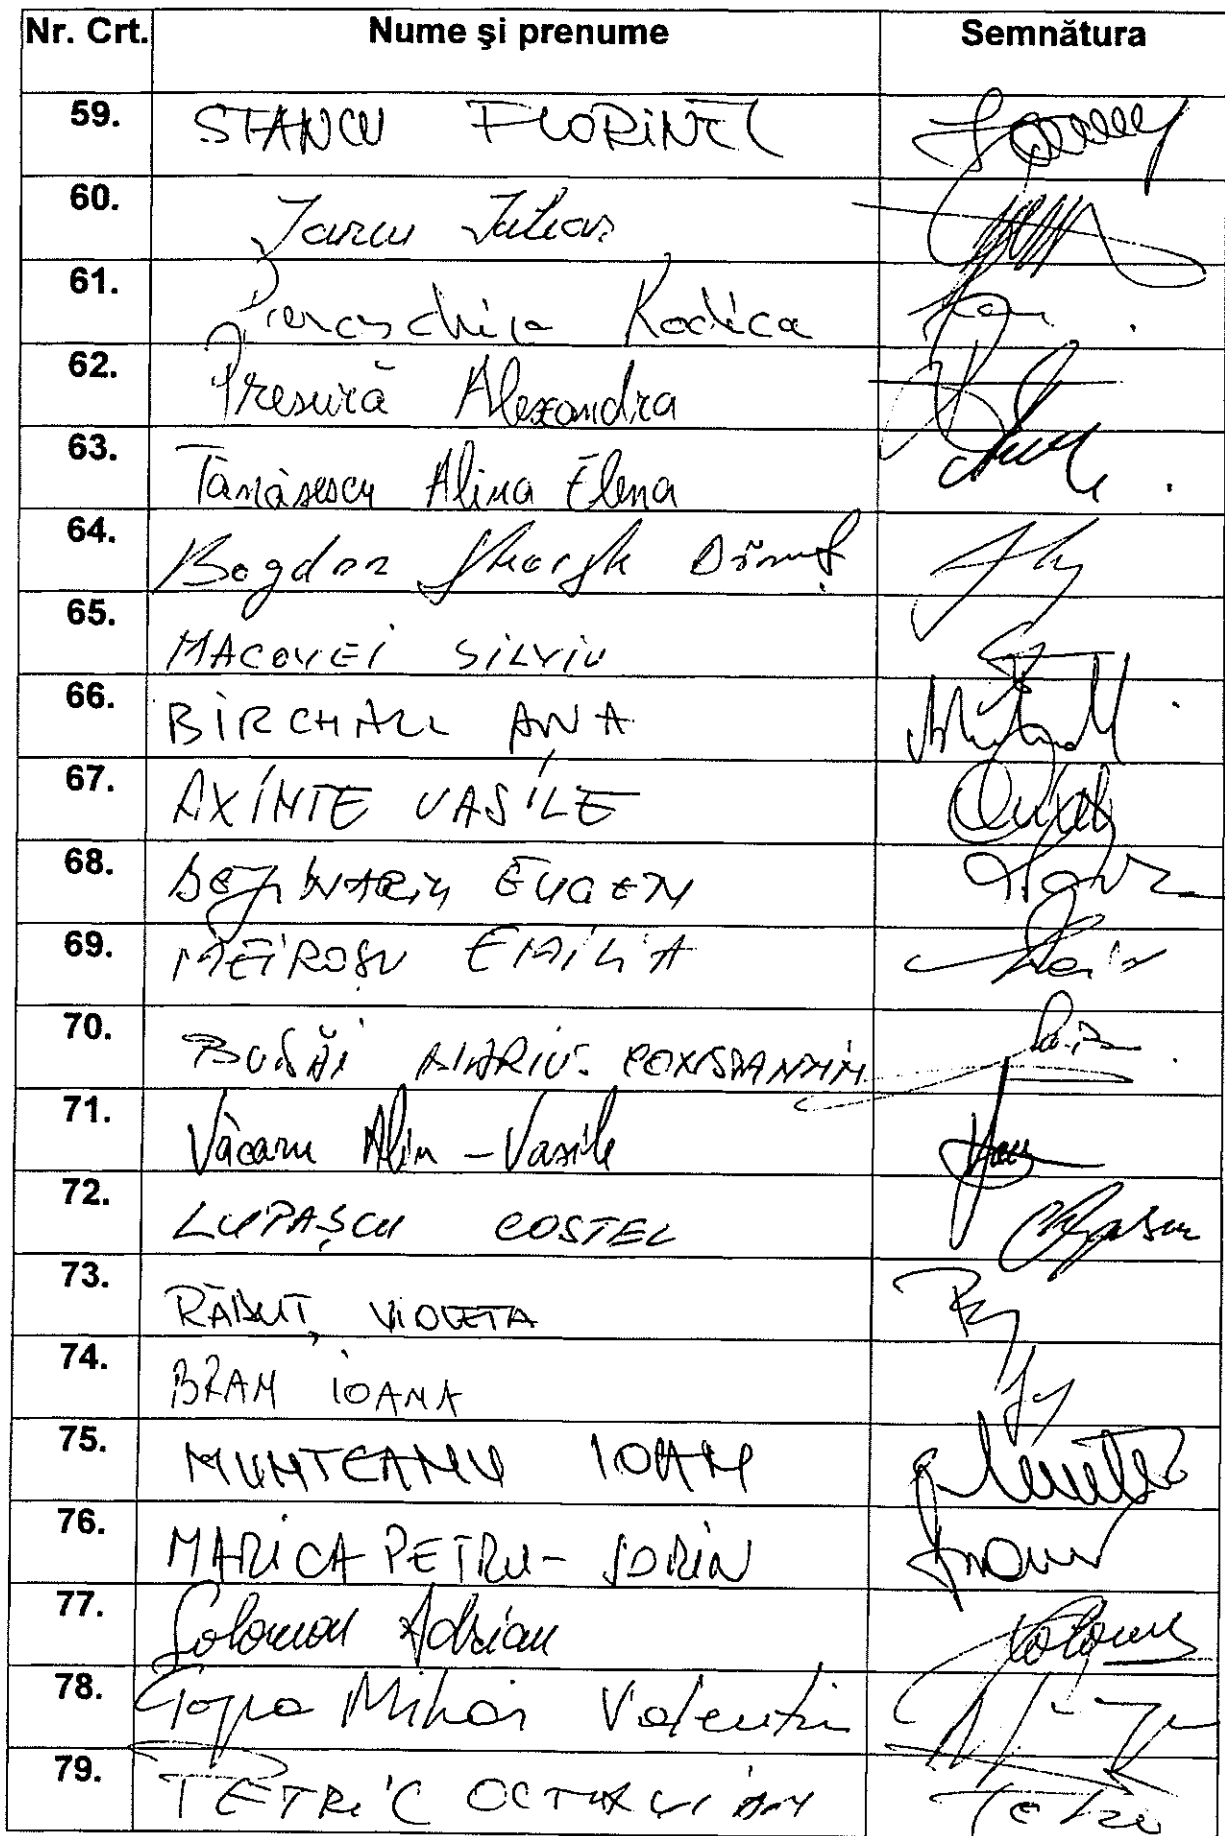 Nr. Crt. Nume și prenume Semnătura
59. STANCU FLORINEL
60. Iancu Iulian
61. Paraschiva Rodica
62. Presură Alexandra
63. Tanăsescu Alina Elena
64. Bogdan Gheorghe Dănuț
65. MACOVEI SILVIU
66. BIRCHALL ANA
67. AXINTE VASILE
68. BEJINARIU EUGEN
69. MEIROȘU EMILIA
70. BUDĂI MARIUS CONSTANTIN
71. Văcaru Alin-Vasile
72. LUPAȘCU COSTEL
73. RĂDUȚ VIOLETA
74. BRAN IOANA
75. MUNTEANU IOAN
76. MARICA PETRU-SORIN
77. Solomon Adrian
78. Popa Mihai Valentin
79. PETRIC OCTAVIAN